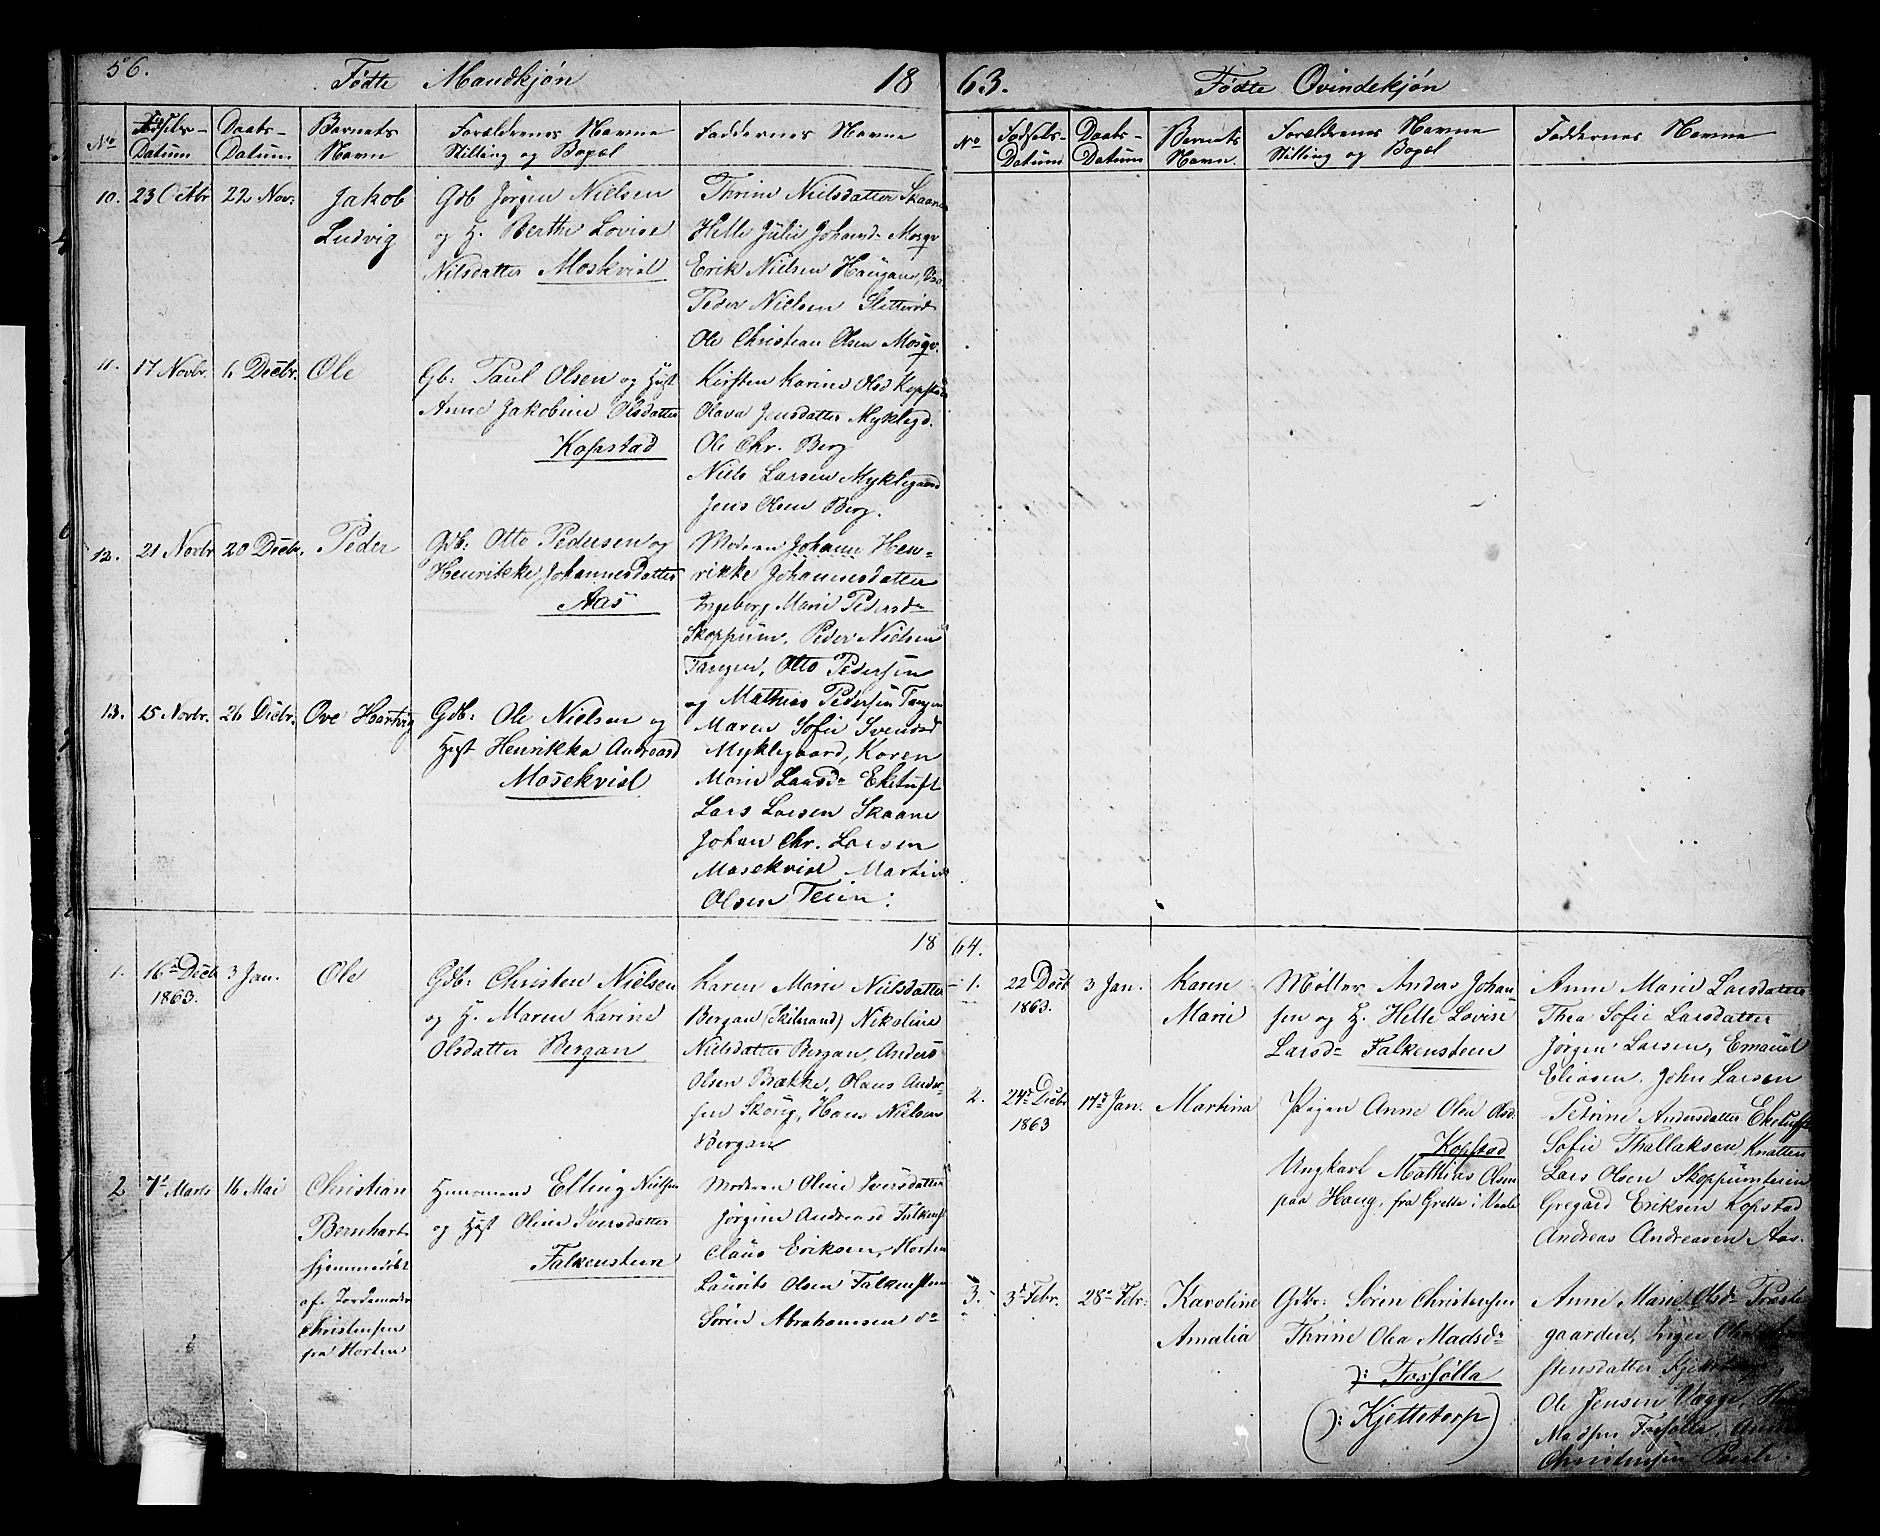 56.
Fødte Mandkjøn
18
No
Fødsels-
Datum
Daabs-
Datum
Barnets
Navn
Forældrenes Navne
Stilling og Bopæl
Faddernes Navne
10.
23 Octbr
22 Nov:
Jakob
Ludvig
Gdb Jørgen Nielsen
og H. Berthe Lovise
Nilsdatter Moskvisl
Thrine Nielsdatter Skaane
Helle Julie Johansd Mosqv
Erik Nielsen Haugane,
Peder Nielsen
Ole Christian Olsen Mosqv.
11.
17 Novbr.
6 Decbr.
Ole
Gb: Paul Olsen og Hust
Anne Jakobine Olsdatter
Kopstad
Kirsten Karine Olsd Kopstad
Olava Jensdatter Myklegd.
Ole Chr. Berg
Niels Larsen Myklegaard
Jens Olsen Berg.
12.
21 Novbr
20 Decbr.
Peder
Gdb: Otto Pedersen og
Henrikke Johannesdatter
Aas
Moderen Johanne Hen-
rikke Johannesdatter
Ingeborg Marie Pedersd
Skoppum, Peder Nielsen
Tangen, Otto Pedersen
og Mathias Pedersen Tangen
13.
15 Novbr.
26 Decbr.
Ove Hartvig
Gdb: Ole Nielsen og
Hust Henrikka Andreasd
Mosekvisl
Maren Sofie Svendsd
Myklegaard, Karen
Marie Laasd Eketuft
Lars Larsen Skaane
Johan Chr. Larsen
Mosekvisl Martin
Olsen Teien:
18
1.
16 Decb
1863.
3 Jan.
Ole
Gdb: Christen Nielsen
og H. Maren Karine
Olsdatter Bergan
Karen Marie Nielsdatter
Bergan (Skibrand) Nikoline
Nielsdatter Bergan, Anders
Olsen Bække, Hans Ander-
sen Skoug, Hans Nielsen
Bergan
2
7 Marts
16 Mai
Christian
Bernhart
hjemmedøbt
af Jordemoder
Christensen
fra Horten
Huusmand Elling Nielsen
og Hust Oline Iversdatter
Falkensteen
Moderen Oline Iversdatter
Jørgine Andreasd Falkenst
Claus Eriksen, Horten
Laurits Olsen Falkensteen
Søren Abrahamsen do
63.
Fødte Qvindekjøn
No
Fødsels-
Datum
Daabs-
Datum
Barnets
Navn.
Forældrenes Navne
Stilling og Bopæl
Faddernes Navne
64.
1.
22 Decb
1863.
3 Jan.
Karen
Marie
Møller Anders Johan-
sen og H. Helle Lovise
Larsd Falkensteen
Anne Marie Larsdatter
Thea Sofie Larsdatter
Jørgen Larsen, Emanuel
Eliasen, John Larsen
2.
24 Decbr
1863
17 Jan.
Martina
Pigen Anne Olea Olsd.
Kopstad
Ungkarl Mathias Olsen
paa Haug, fra Grette i Vaale
Petrine Andersdatter Eketuft
Sofie Thallaksen, Knatten
Lars Olsen Skoppumteien
Gregard Eriksen Kopstad
Andreas Andreasen Aas.
3.
3 Febr.
28 Febr:
Karoline
Amalia
Gdbr: Søren Christensen
Thrine Olea Madsd
): Fossølta
(): Kjettetorp)
Anne Marie Olsd Præste
gaarden, Inger
stensdatter
Ole Jensen Vægge,
Madsen Fossølta,
Christensen